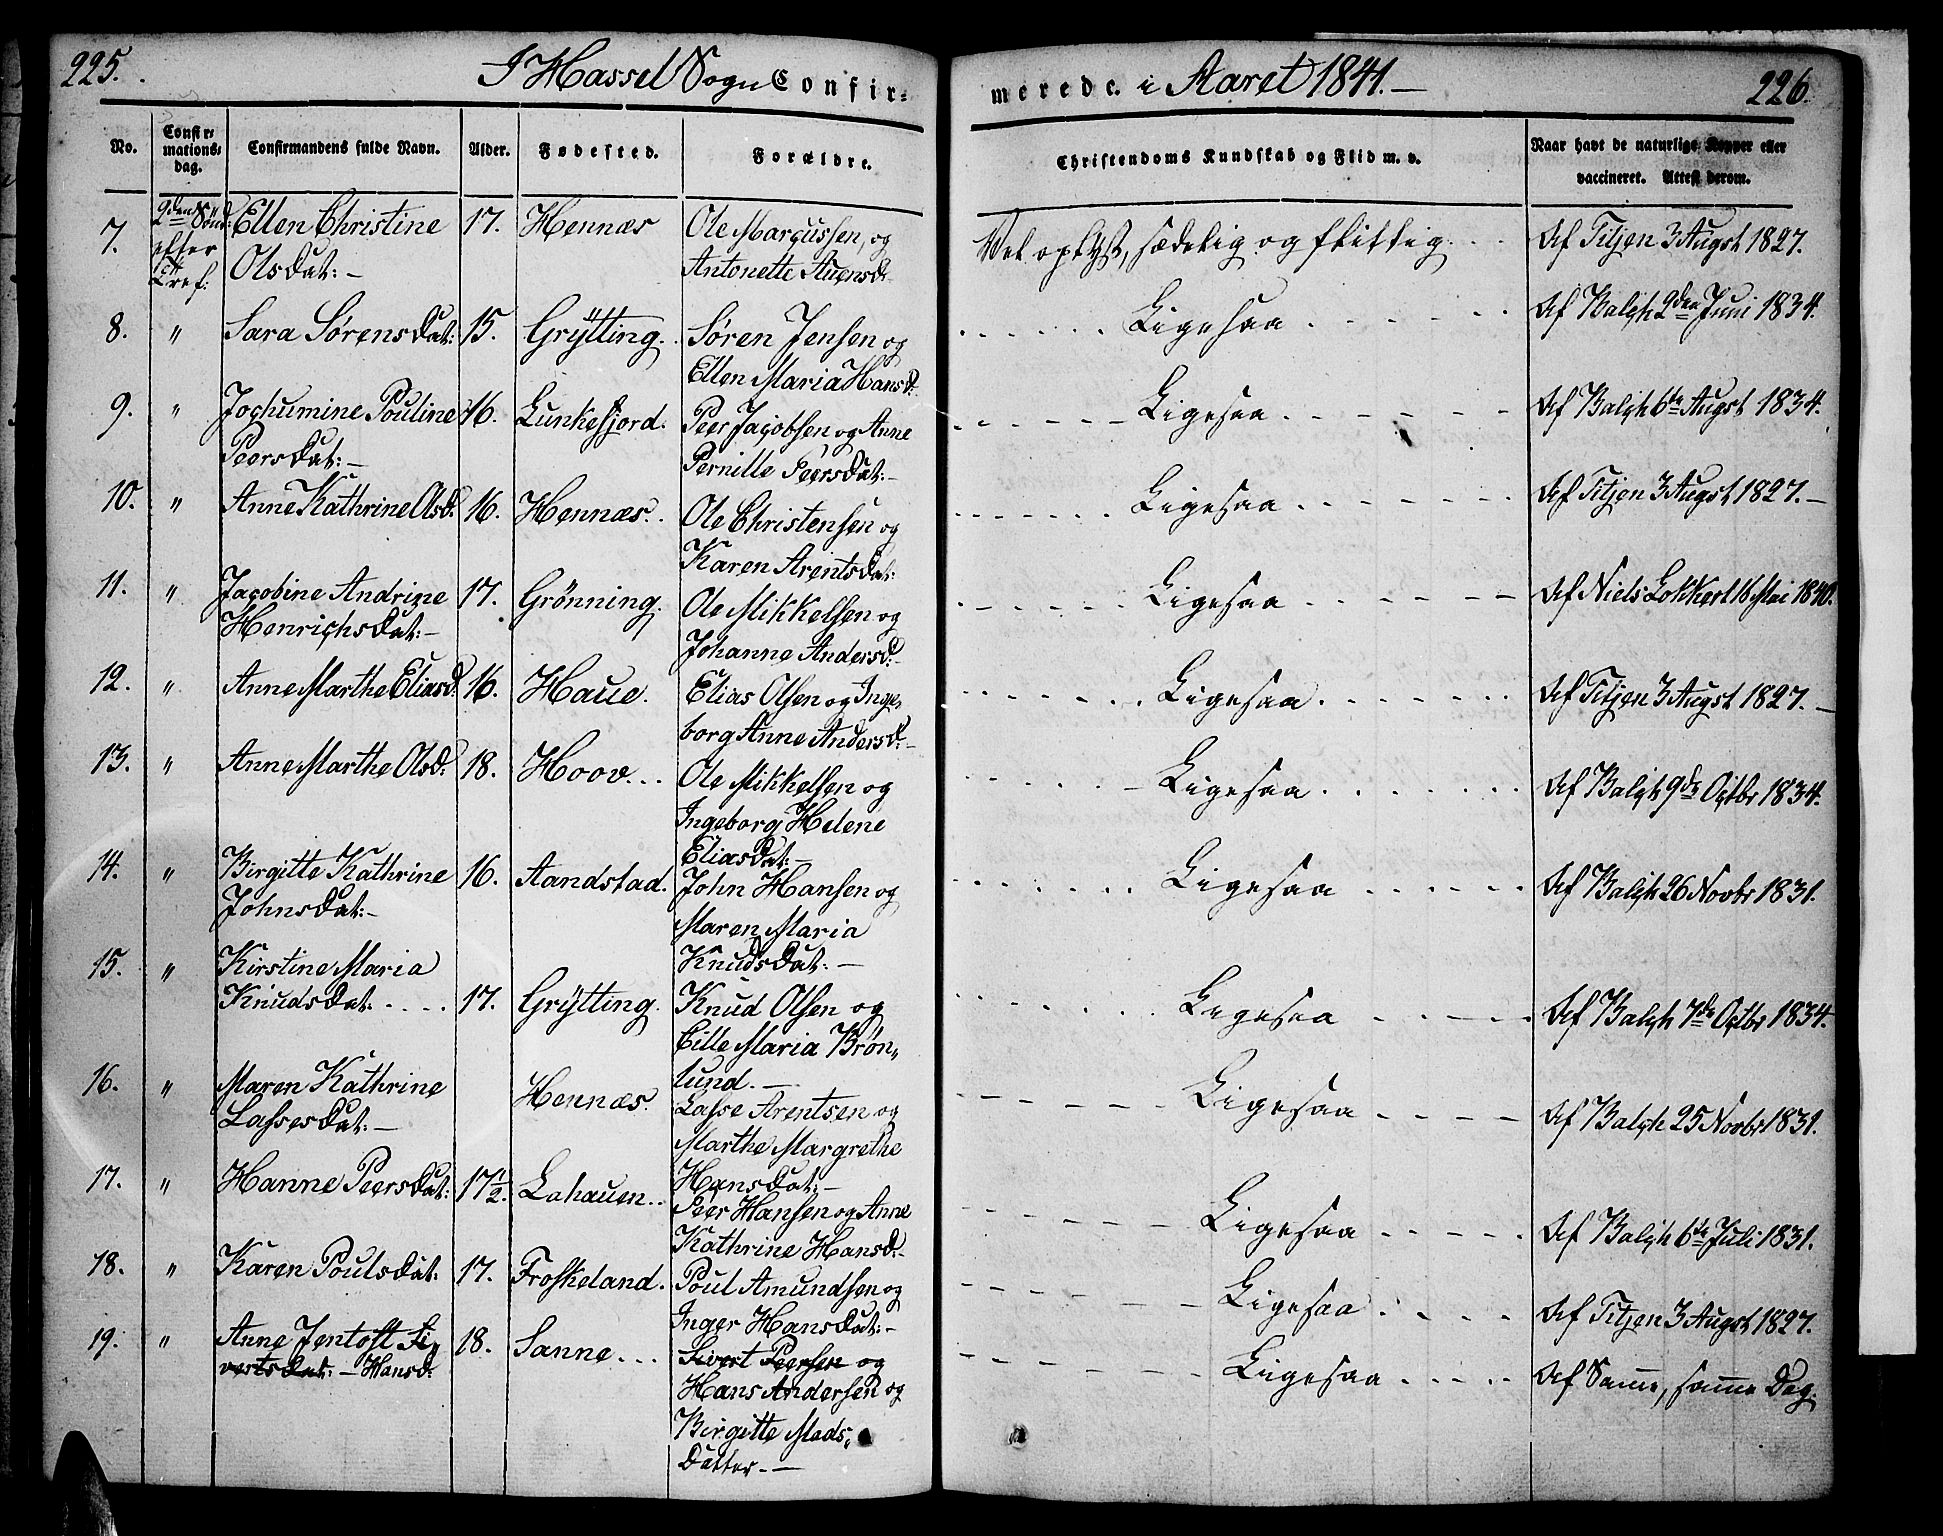 225. I Hassel Sogn Confir-
merede i Aaret 1841.— 226.
No. Confirmationsdag. Confirmandens fulde Navn. Alder. Fødested. Forældre. Christendoms Kundskab og Flid m. v. Naar havt de naturlige Kopper eller vaccineret. Attest derom.
7. 2den Sönd. Ellen Christine 17. Hennæs Ole Marcussen, og Vel oplyst, sædelig og flittig. Af Titjen 3 Augst 1827.
efter Olsdat:— Antonette
Tref:
8. " Sara Sørensdat: 15. Grÿtting. Søren Jensen og Ligesaa Af Balch 2den Juni 1834.
Ellen Maria Hansd:
9. " Jochumine Pouline 16. Lunkefjord. Peer Jacobsen og Anne Ligesaa Af Balch 6te Augst 1834.
Peersdat:— Pernille Peersdat:—
10. " Anne Kathrine Olsd. 16. Hennæs. Ole Christensen og Ligesaa Af Titjen 3 Augst 1827.—
Karen Arentsdat:
11. " Jacobine Andrine 17. Grönning. Ole Mikkelsen og Ligesaa Af Niels Lokkert 16 Mai 1840.
Henrichsdat:— Johanne Andersd:—
12. " Anne Marthe Eliasd. 16. Haue. Elias Olsen og Inge- Ligesaa Af Titjen 3 Augst 1827.—
borg Anne Andersd:—
13. " Anne Marthe Olsd: 18. Hoov. Ole Mikkelsen og Ligesaa Af Balch 9de Octbr 1834.
Ingeborg Helene
Eliasdat:—
14. " Birgitte Kathrine 16. Aandstad. John Hansen og Ligesaa Af Balch 26 Novbr 1831.
Johnsdat:— Maren Maria
Knudsdat:—
15. " Kirstine Maria
Knudsdat: 17. Grÿtting. Knud Olsen og Ligesaa Af Balch 7de Octbr 1834.
Cille Maria Brøn„
lund.—
16. " Maren Kathrine Hennæs. Lasse Arentsen og Ligesaa Af Balch 25 Novbr 1831.
Lassesdat:— Marthe Margrethe
Hansdat:—
17. " Hanne Peersdat: 17½. Lahauen. Peer Hansen og Anne Ligesaa Af Balch 6te Juli 1831.
Kathrine Hansd:—
18. " Karen Poulsdat: 17. Froskeland. Poul Amundsen og Ligesaa Af Titjen 3 Augst 1827.
Inger Hansdat:—
19. " Anne Jentoft Si„ 18. Sanne. Sivert Peersen og Ligesaa Af Samme, samme Dag.
vertsdat:— Hansd: Hans Andersen og
Birgitte Mads„
Datter.—